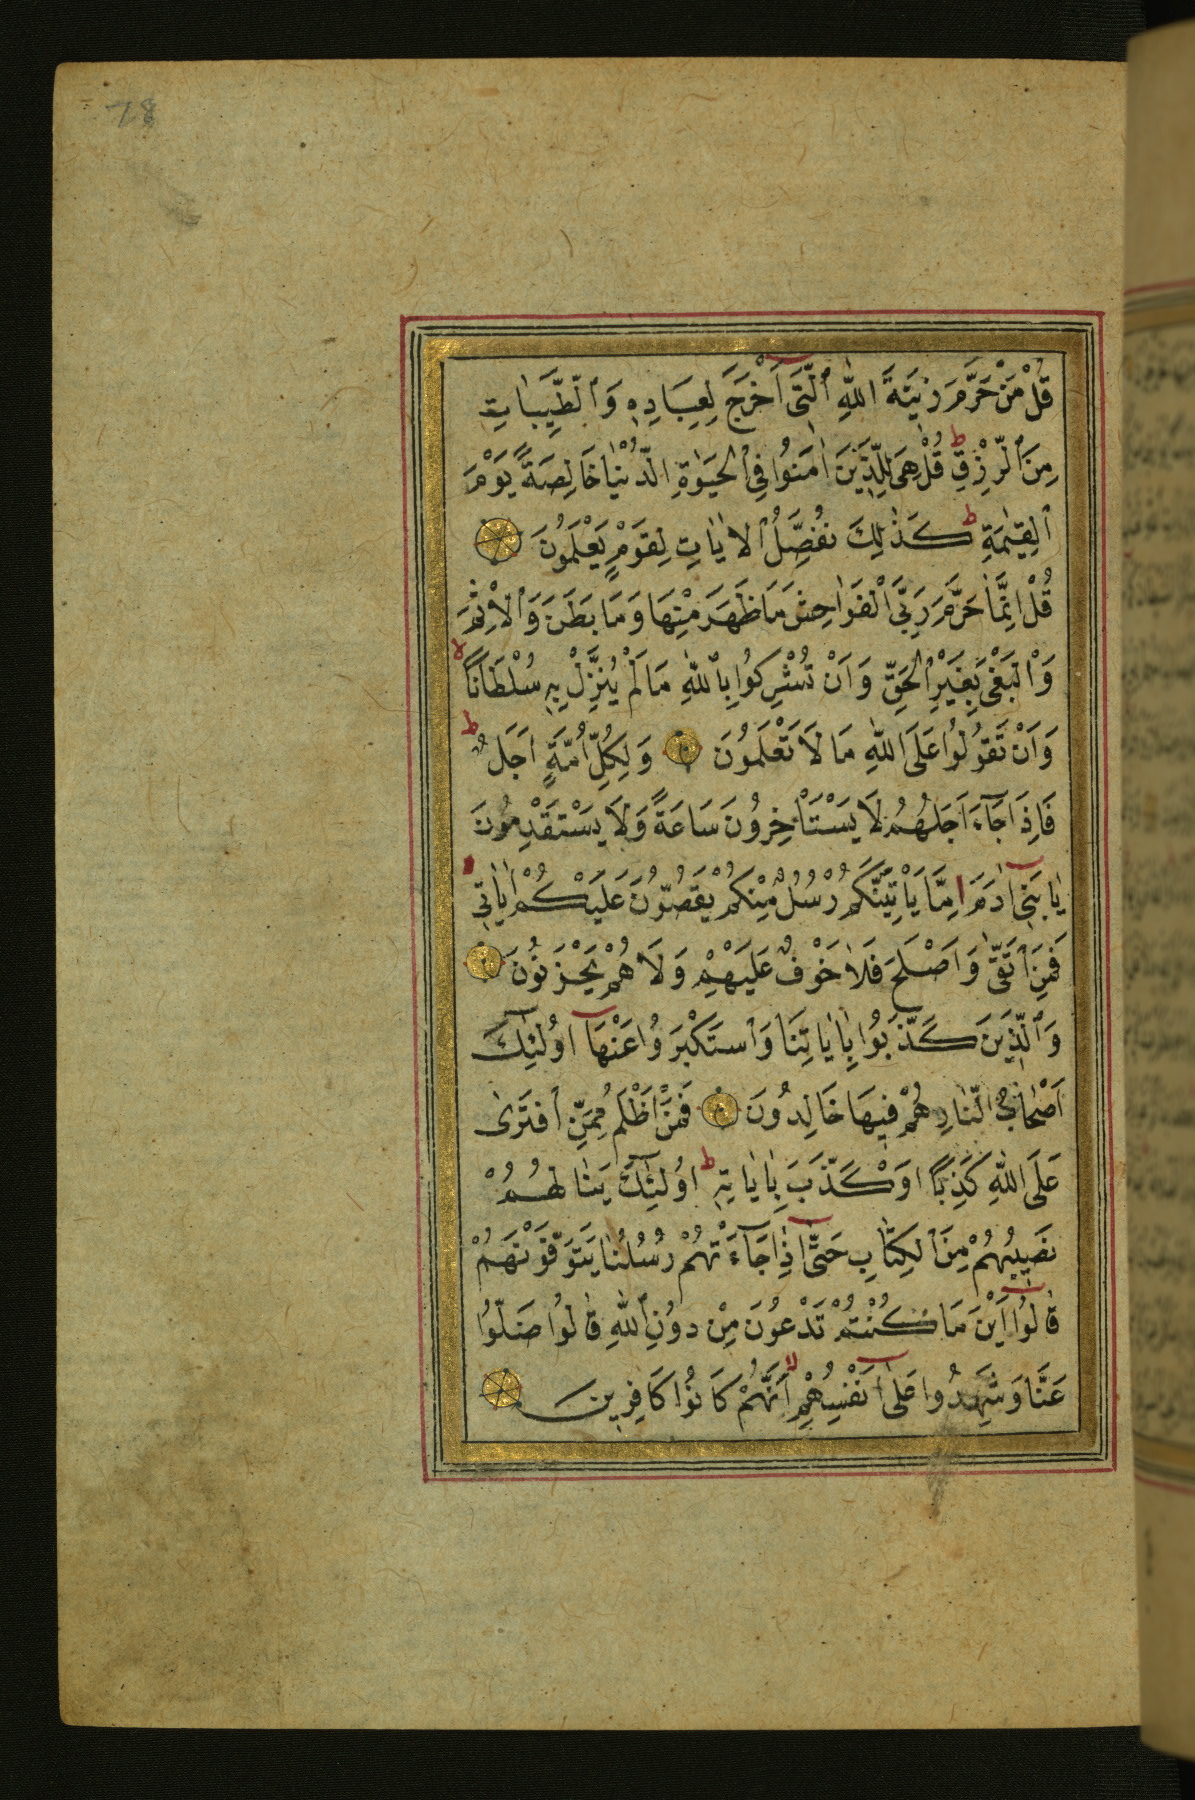 78
قُلْ مَنْ حَرَّمَ زِينَةَ اللّٰهِ ٱلَّتِٓى اَخْرَجَ لِعِبَادِهٖ وَٱلطَّيِّبَاتِ
مِنَ ٱلرِّزْقِ ط قُلْ هِىَ لِلَّذِينَ اٰمَنُوا فِى ٱلْحَيٰوةِ الدُّنْيَا خَالِصَةً يَوْمَ
ٱلْقِيٰمَةِ ط كَذٰلِكَ نُفَصِّلُ ٱلْاٰيَاتِ لِقَوْمٍ يَعْلَمُونَ
قُلْ اِنَّمَا حَرَّمَ رَبِّىَ ٱلْفَوَاحِشَ مَا ظَهَرَ مِنْهَا وَمَا بَطَنَ وَٱلْاِثْمَ
وَٱلْبَغْىَ بِغَيْرِ ٱلْحَقِّ وَاَنْ تُشْرِكُوا بِٱللّٰهِ مَا لَمْ يُنَزِّلْ بِهٖ سُلْطَانًا لا
وَاَنْ تَقُولُوا عَلَى اللّٰهِ مَا لَا تَعْلَمُونَ وَلِكُلِّ اُمَّةٍ اَجَلٌ ط
فَاِذَا جَآءَ اَجَلُهُمْ لَا يَسْتَأْخِرُونَ سَاعَةً وَلَا يَسْتَقْدِمُونَ
يَا بَنِٓى اٰدَمَ اِمَّا يَأْتِيَنَّكُمْ رُسُلٌ مِنْكُمْ يَقُصُّونَ عَلَيْكُمْ اٰيَاتِى
فَمَنِ ٱتَّقٰى وَاَصْلَحَ فَلَا خَوْفٌ عَلَيْهِمْ وَلَا هُمْ يَحْزَنُونَ
وَٱلَّذِينَ كَذَّبُوا بِاٰيَاتِنَا وَٱسْتَكْبَرُوا عَنْهَآ اُولٰٓئِكَ
اَصْحَابُ النَّارِ هُمْ فِيهَا خَالِدُونَ فَمَنْ اَظْلَمُ مِمَّنِ ٱفْتَرٰى
عَلَى اللّٰهِ كَذِبًا اَوْ كَذَّبَ بِاٰيَاتِهٖ ط اُولٰٓئِكَ يَنَالُهُمْ
نَصِيبُهُمْ مِنَ ٱلْكِتَابِ حَتّٰٓى اِذَا جَآءَتْهُمْ رُسُلُنَا يَتَوَفَّوْنَهُمْ
قَالُوٓا اَيْنَ مَا كُنْتُمْ تَدْعُونَ مِنْ دُونِ ٱللّٰهِ قَالُوا ضَلُّوا
عَنَّا وَشَهِدُوا عَلٰٓى اَنْفُسِهِمْ لا اَنَّهُمْ كَانُوا كَافِرِينَ